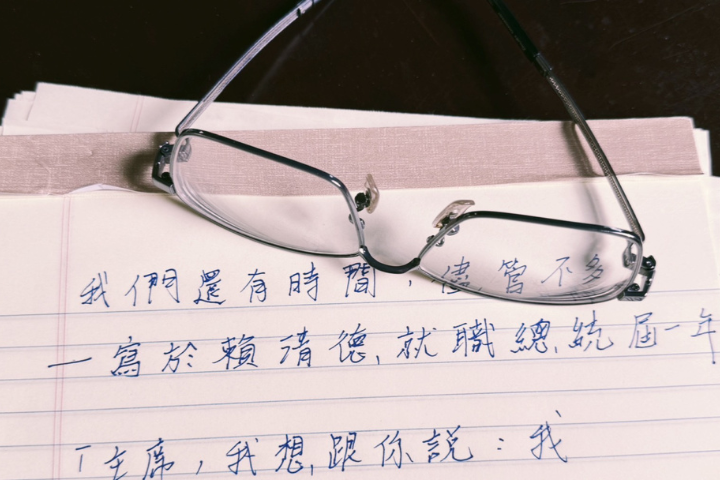 我們還有時間，儘管不多
一寫於賴清德就職總統屆一年
「主席，我想跟你說：我